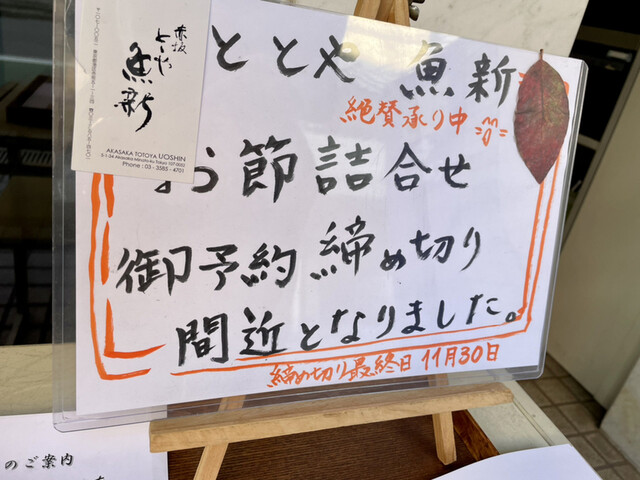 赤坂
ととや
魚新
AKASAKA TOTOYA UOSHIN
5-1-34 Akasaka Minato-ku Tokyo 107-0052
Phone : 03 - 3585 - 4701
ととや 魚新
絶賛承り中
お節詰合せ
御予約締め切り
間近となりました。
締め切り最終日 11月30日
のご案内